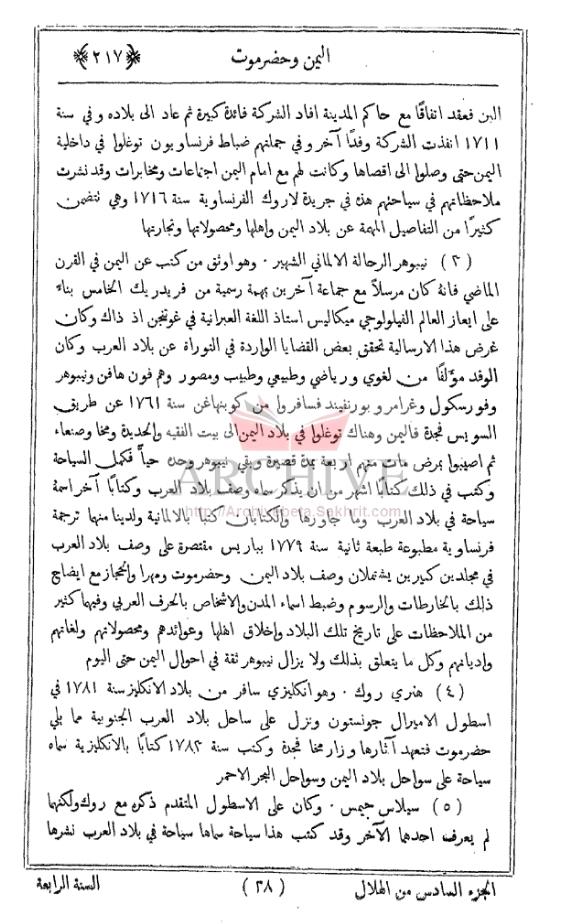 اليمن وحضرموت
﴿ ٢١٧ ﴾
البن فعقد اتفاقًا مع حاكم المدينة افاد الشركة فائدة كبيرة ثم عاد الى بلاده وفي سنة
١٧١١ انفذت الشركة وفدًا آخر وفي جملتهم ضباط فرنساويون توغلوا في داخلية
اليمن حتى وصلوا الى اقصاها وكانت لهم مع امام اليمن اجتماعات ومخابرات وقد نشرت
ملاحظاتهم في سياحتهم هذه في جريدة لاروك الفرنساوية سنة ١٧١٦ وهي تتضمن
كثيرًا من التفاصيل المهمة عن بلاد اليمن واهلها ومحصولاتها وتجارتها
(٣) نيبوهر الرحالة الالماني الشهير · وهو اوثق من كتب عن اليمن في القرن
الماضي فانهُ كان مرسلاً مع جماعة آخرين بمهمة رسمية من فريدريك الخامس بناءً
على ايعاز العالم الفيلولوجي ميكاليس استاذ اللغة العبرانية في غوتنجن اذ ذاك وكان
غرض هذا الارسالية تحقق بعض القضايا الواردة في التوراة عن بلاد العرب وكان
الوفد مؤلفًا من لغوي ورياضي وطبيعي وطبيب ومصور وهم فون هافن ونيبوهر
وفورسكول وغرامر وبورنفيند فسافروا من كوبنهاغن سنة ١٧٦١ عن طريق
السويس فجدة فاليمن وهناك توغلوا في بلاد اليمن الى بيت الفقيه والحديدة ومخا وصنعاء
ثم اصيبوا بمرض مات منهم اربعة بمدة قصيرة وبقي نيبوهر وحده حياً فكمل السياحة
وكتب في ذلك كتابًا اشهر من ان يذكر سماه وصف بلاد العرب وكتابًا آخر اسمهُ
سياحة في بلاد العرب وما جاورها والكتابان كتبا بالالمانية ولدينا منها ترجمة
فرنساوية مطبوعة طبعة ثانية سنة ١٧٧٩ بباريس مقتصرة على وصف بلاد العرب
في مجلدين كبيرين يشتملان وصف بلاد اليمن وحضرموت ومهرا والحجاز مع ايضاح
ذلك بالخارطات والرسوم وضبط اسماء المدن والاشخاص بالحرف العربي وفيهما كثير
من الملاحظات على تاريخ تلك البلاد واخلاق اهلها وعوائدهم ومحصولاتهم ولغاتهم
واديانهم وكل ما يتعلق بذلك ولا يزال نيبوهر ثقة في احوال اليمن حتى اليوم
(٤) هنري روك · وهو انكليزي سافر من بلاد الانكليز سنة ١٧٨١ في
اسطول الاميرال جونستون ونزل على ساحل بلاد العرب الجنوبية مما يلي
حضرموت فتعهد آثارها وزار مخا فجدة وكتب سنة ١٧٨٣ كتابًا بالانكليزية سماه
سياحة على سواحل بلاد اليمن وسواحل البحر الاحمر
(٥) سيلاس جيمس · وكان على الاسطول المتقدم ذكره مع روك ولكنهما
لم يعرف احدهما الآخر وقد كتب هذا سياحة سماها سياحة في بلاد العرب نشرها
الجزء السادس من الهلال
(٢٨)
السنة الرابعة
ARCHIVE
http://Archivebeta.Sakhrit.com